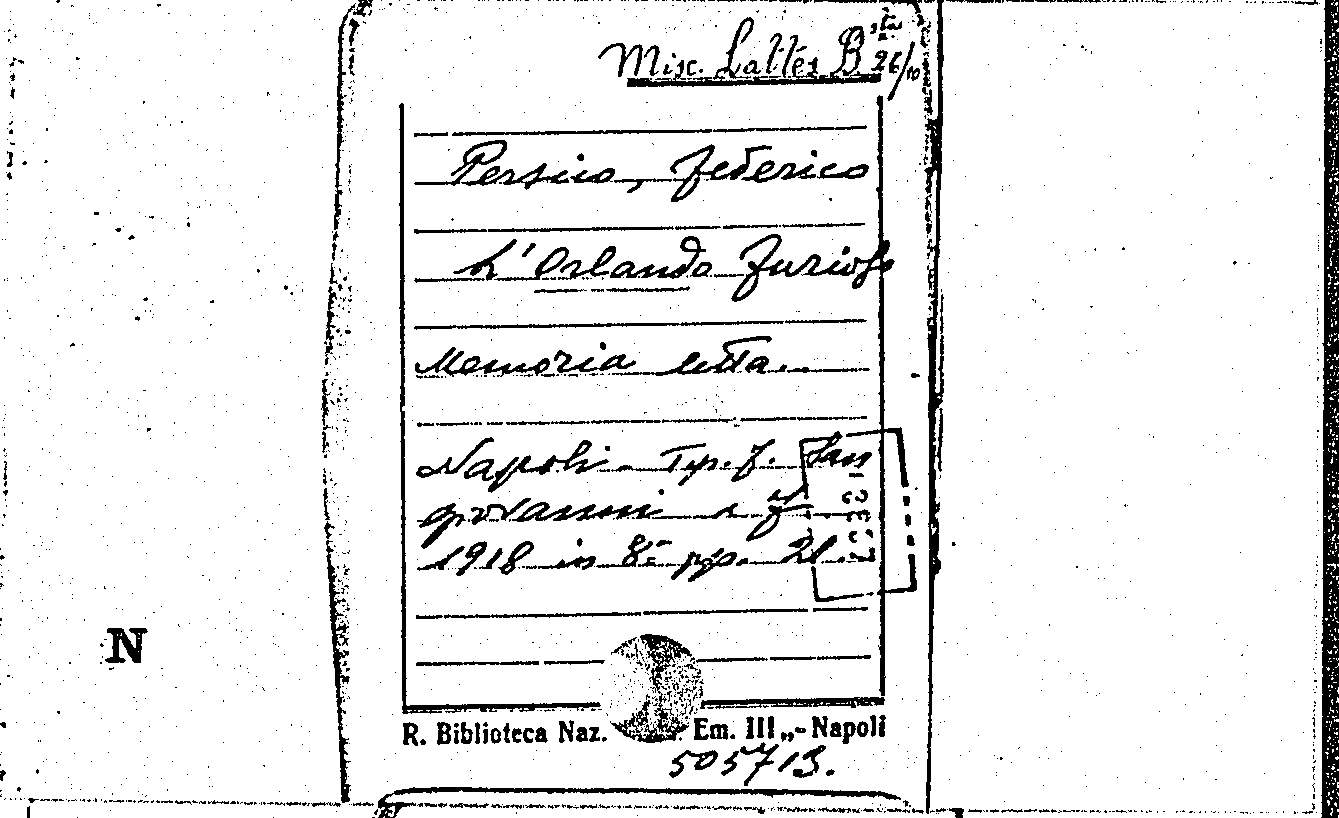 Misc. Lattes B.sta 26/10
Persico, Federico
L'Orlando Furioso
Memoria letta...
Napoli. Tip. f. San
giovanni e f
1918 in 8º pp. 21.
N
R. Biblioteca Naz. Em. III „- Napoli
505713.